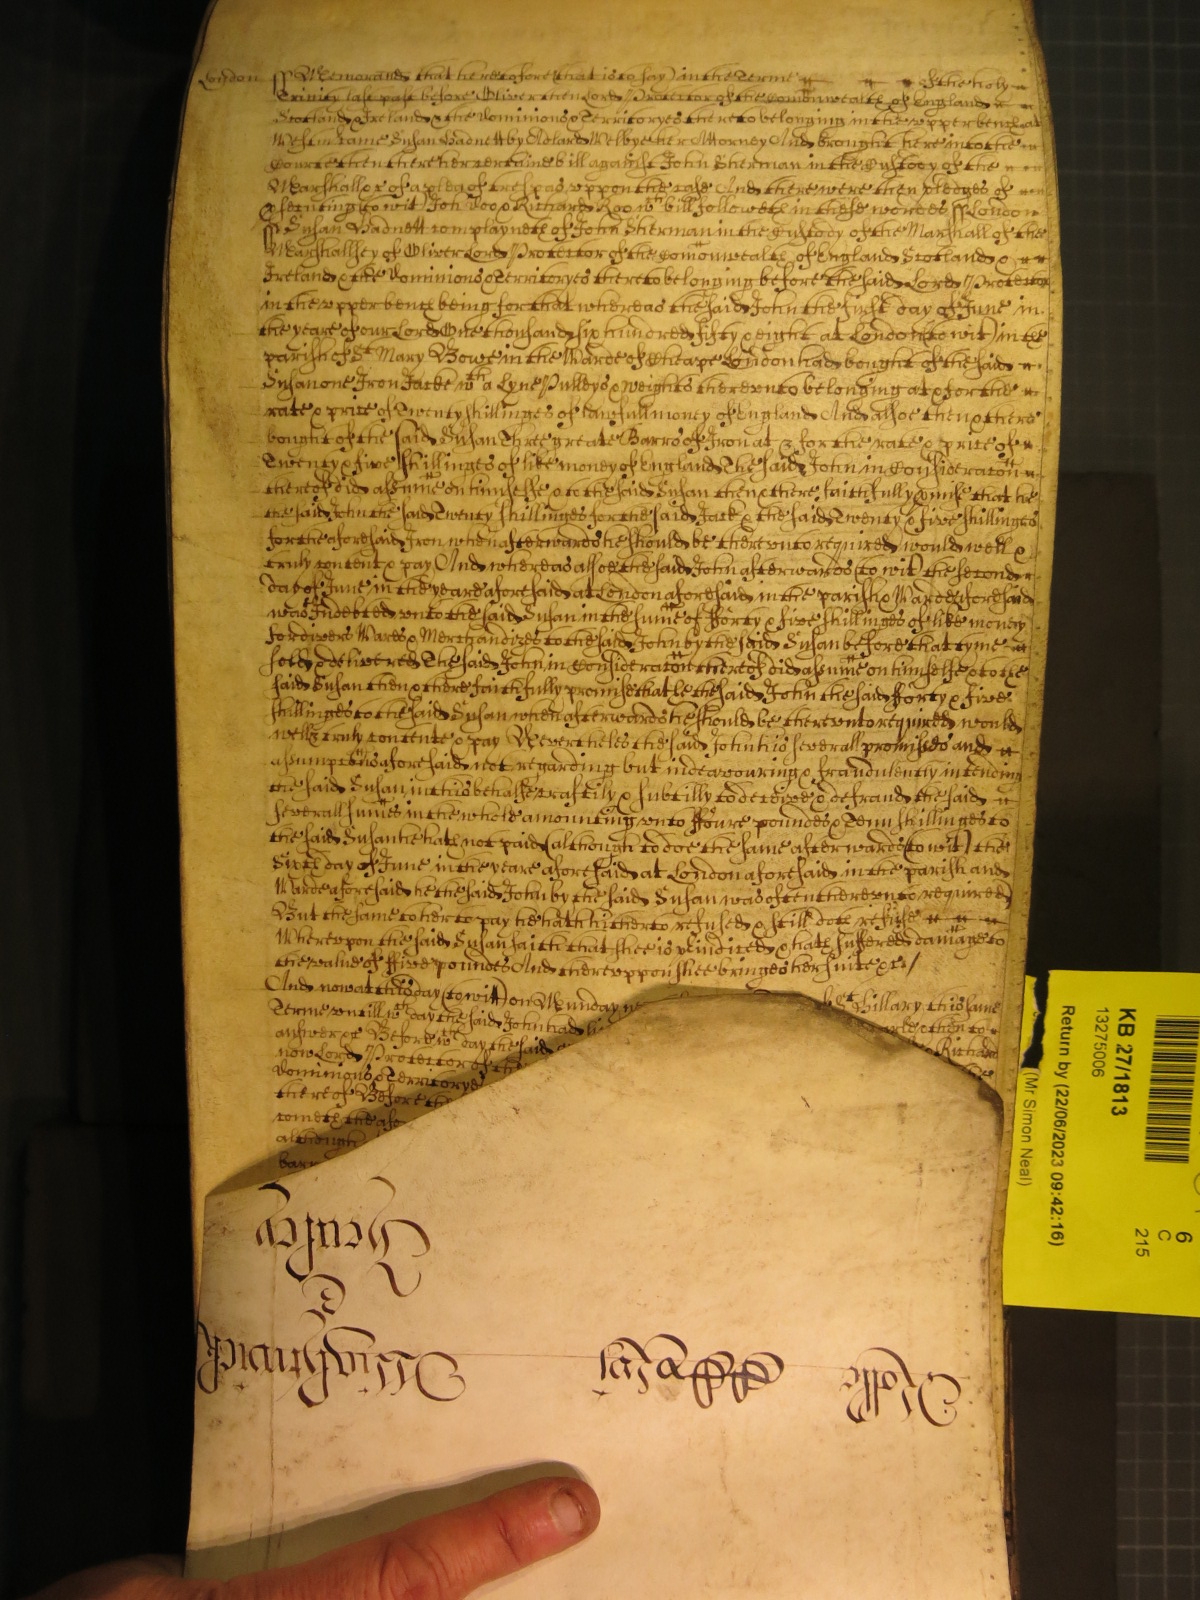 London ss Memorand that heretofore (that is to say) in the Terme of the holy
Trinity last past before Oliver then Lord Protector of the Comonwealth of England
Scotland & Ireland & the Dominions & Territoryes thereto belonging in the upper bench at
Westm came Susan Badnett by Adlard Welbye her Attorney And brought here into the
Courte then there her certaine bill against John Sherman in the Custody of the
Marshall &c of a plea of trespas uppon the case And there were then pledges of
prosecuting (to wit) John Doo & Richard Roo wch bill followeth in these wordes ss London
ss Susan Badnett complayneth of John Sherman in the Custody of the Marshall of the
Marshallsey of Oliver Lord Protector of the Comonwealth of England Scotland &
Ireland & the Dominions & Territoryes thereto belonging before the said Lord Protector
in the upper bench being for that whereas the said John the first day of June in
the yeare of our Lord One thousand six hundred fifty & eight at London (to wit) in the
parish of St Mary Bowe in the Warde of Cheape London had bought of the said
Susan one Iron Jacke wth a Lyne Pulleys & weights thereunto belonging at & for the
rate & price of Twenty shillinges of lawfull money of England And alsoe then & there
bought of the said Susan Three greate Barrs of Iron at & for the rate & price of
Twenty & five shillinges of like money of England The said John in Consideracon
thereof did assume on himselfe & to the said Susan then & there faithfully promise that he
the said John the said Twenty shillinges for the said Jack & the said Twenty & five shillinges
for the aforesaid Iron when afterwards he should be thereunto required would well &
truly content & pay And whereas alsoe the said John afterwards (to wit) the second
day of June in the yeare aforesaid at London aforesaid in the parish & Warde aforesaid
was Indebted unto the said Susan in the sume of fforty & five shillinges of like money
for divers Wares & Merchandizes to the said John by the said Susan before that tyme
sold & delivered The said John in Consideracon thereof did assume on himselfe & to the
said Susan then & there faithfully promise that he the said John the said fforty & five
shillinges to the said Susan when afterwards he should be thereunto required would
well & truly contente & pay Neverthelesse the said John his severall promises and
assumptions aforesaid not regarding but indeavouring & fraudulently intending
the said Susan in this behalfe craftily & subtilly to deceive & defraud the said
severall sumes in the whole amounting unto ffoure poundes & Tenn shillinges to
the said Susan he hath not paid (although to doe the same afterwards (to wit) the
Sixth day of June in the yeare aforesaid at London aforesaid in the parish and
Warde aforesaid he the said John by the said Susan was often thereunto required)
But the same to her to pay he hath hitherto refused & still doth refuse
Whereupon the said Susan saith that shee is prejudiced & hath suffered damage to
the value of ffive poundes And thereuppon shee bringes her suite &c /
And now at this day (to wit) on Munday ne St Hillary this same
Terme untill wch day the said John had then to
answer &c Before wch day the said Richard
now Lord Protector of
Dominions & Territoryes
thereof Before the
cometh the afor
although
barr
Rolls
Wightwick
e
Cheusey
KB 27/1813
13275006
Return by (22/06/2023 09:42:16)
(Mr Simon Neal)
6
C
215